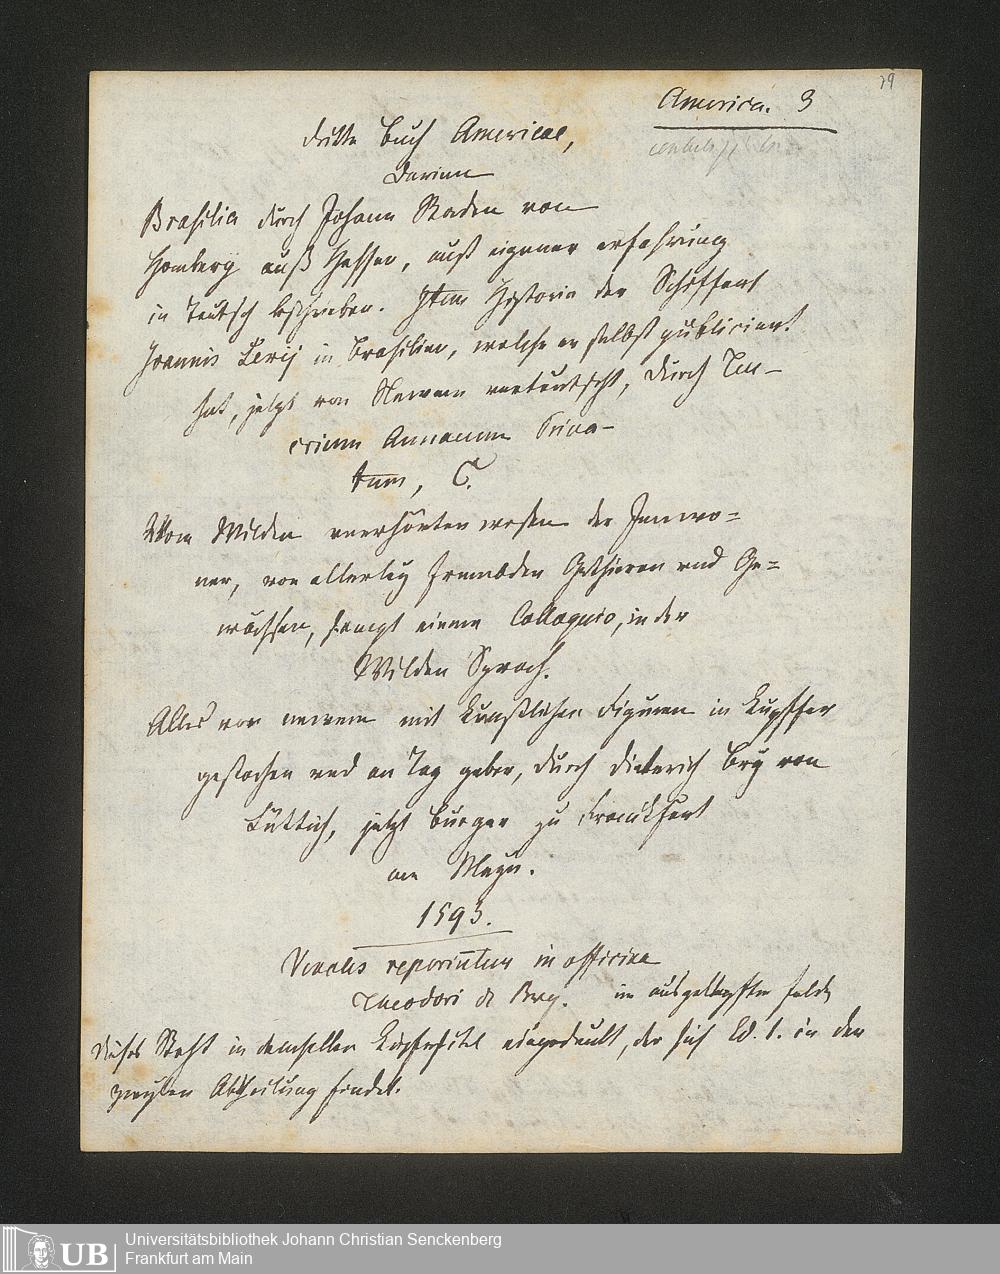 79
America. 3
Dritte Buch Americae,
Darinn
Brasilia durch Johann Staden von
Homberg auß Hessen, auß eigener erfahrung
in Teutsch beschrieben. Item Historia der Schiffart
Joannis Lerij in Brasilien, welche er selbst publiciert
hat, jetzt von Newem verteutscht, durch Teu-
crium Annaeum Priua-
tum, C.
Vom Wilden vnerhörten wesen der Innwo-
ner, von allerley frembden Gethieren vnd Ge-
wächsen, sampt einem Colloquio, in der
Wilden Sprach.
Alles von newem mit künstlichen Figuren in Kupffer
gestochen vnd an Tag geben, durch Dieterich Bry von
Lüttich, jetzt Burger zu Franckfurt
am Mayn.
1593.
Venales reperiuntur in officina
Theodori de Bry. im ausgeklopften Felde
Dieses Steht in demselben Kupfertitel eingedruckt, der sich Ed. 1. in der
zweyten Abtheilung findet.
Universitätsbibliothek Johann Christian Senckenberg
Frankfurt am Main
UB